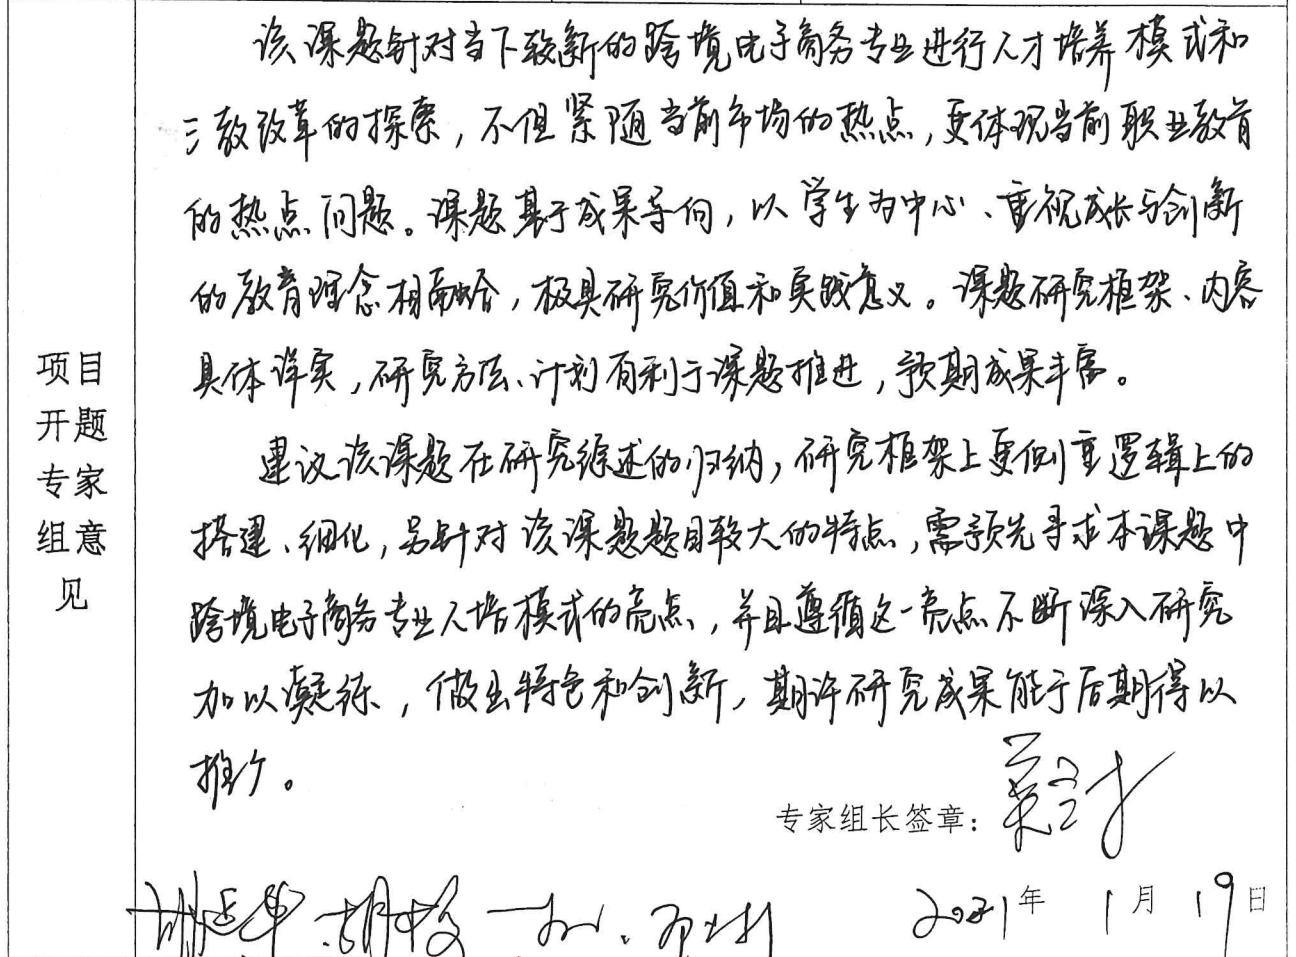 项目
开题
专家
组意
见
该课题针对当下较新的跨境电子商务专业进行人才培养模式和
三教改革的探索，不但紧随当前市场的热点，更体现当前职业教育
的热点问题。课题基于成果导向，以学生为中心、重视成长与创新
的教育理念相融合，极具研究价值和实践意义。课题研究框架、内容
具体详实，研究方法、计划有利于课题推进，预期成果丰富。
建议该课题在研究综述的归纳，研究框架上更侧重逻辑上的
搭建、细化，另针对该课题题目较大的特点，需预先寻求本课题中
跨境电子商务专业人培模式的亮点，并且遵循这一亮点不断深入研究
加以凝练，做出特色和创新，期许研究成果能于后期得以
推广。
专家组长签章：
2021年 1月 19日